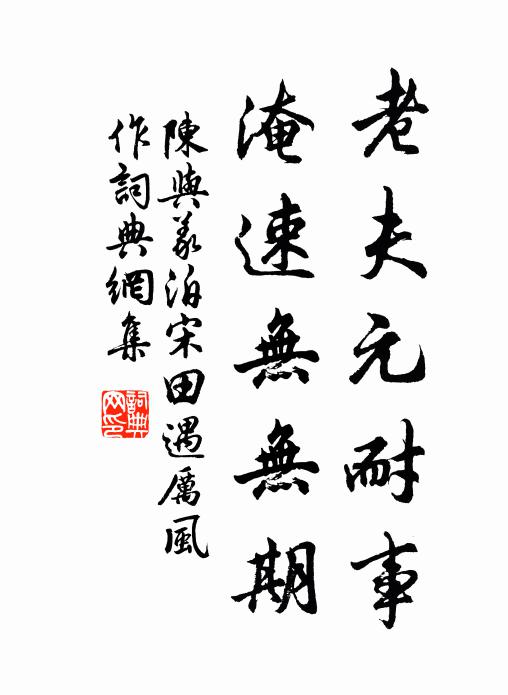 老夫元耐事
淹速無無期
陳與義泊宋田遇厲風
作詞典網集
詞典网印